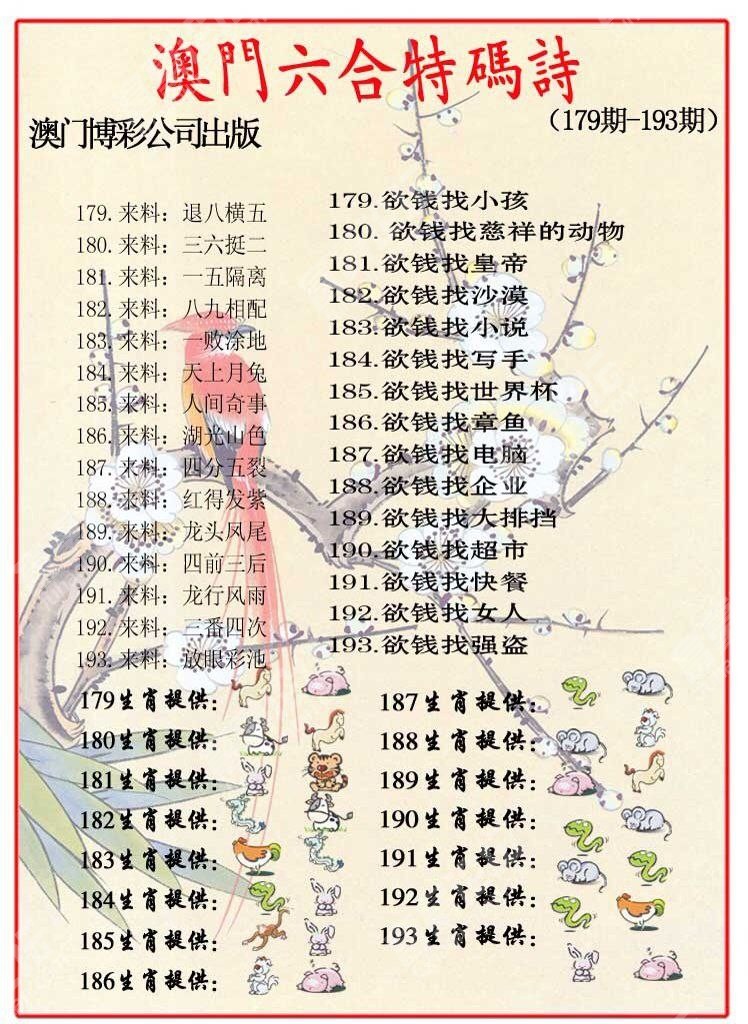 澳門六合特碼詩
澳门博彩公司出版
（179期-193期）
179.来料：退八横五
180.来料：三六挺二
181.来料：一五隔离
182.来料：八九相配
183.来料：一败涂地
184.来料：天上月兔
185.来料：人间奇事
186.来料：湖光山色
187.来料：四分五裂
188.来料：红得发紫
189.来料：龙头风尾
190.来料：四前三后
191.来料：龙行风雨
192.来料：三番四次
193.来料：放眼彩池
179.欲钱找小孩
180.欲钱找慈祥的动物
181.欲钱找皇帝
182.欲钱找沙漠
183.欲钱找小说
184.欲钱找写手
185.欲钱找世界杯
186.欲钱找章鱼
187.欲钱找电脑
188.欲钱找企业
189.欲钱找大排挡
190.欲钱找超市
191.欲钱找快餐
192.欲钱找女人
193.欲钱找强盗
179生肖提供：
180生肖提供：
181生肖提供：
182生肖提供：
183生肖提供：
184生肖提供：
185生肖提供：
186生肖提供：
187生肖提供：
188生肖提供：
189生肖提供：
190生肖提供：
191生肖提供：
192生肖提供：
193生肖提供：